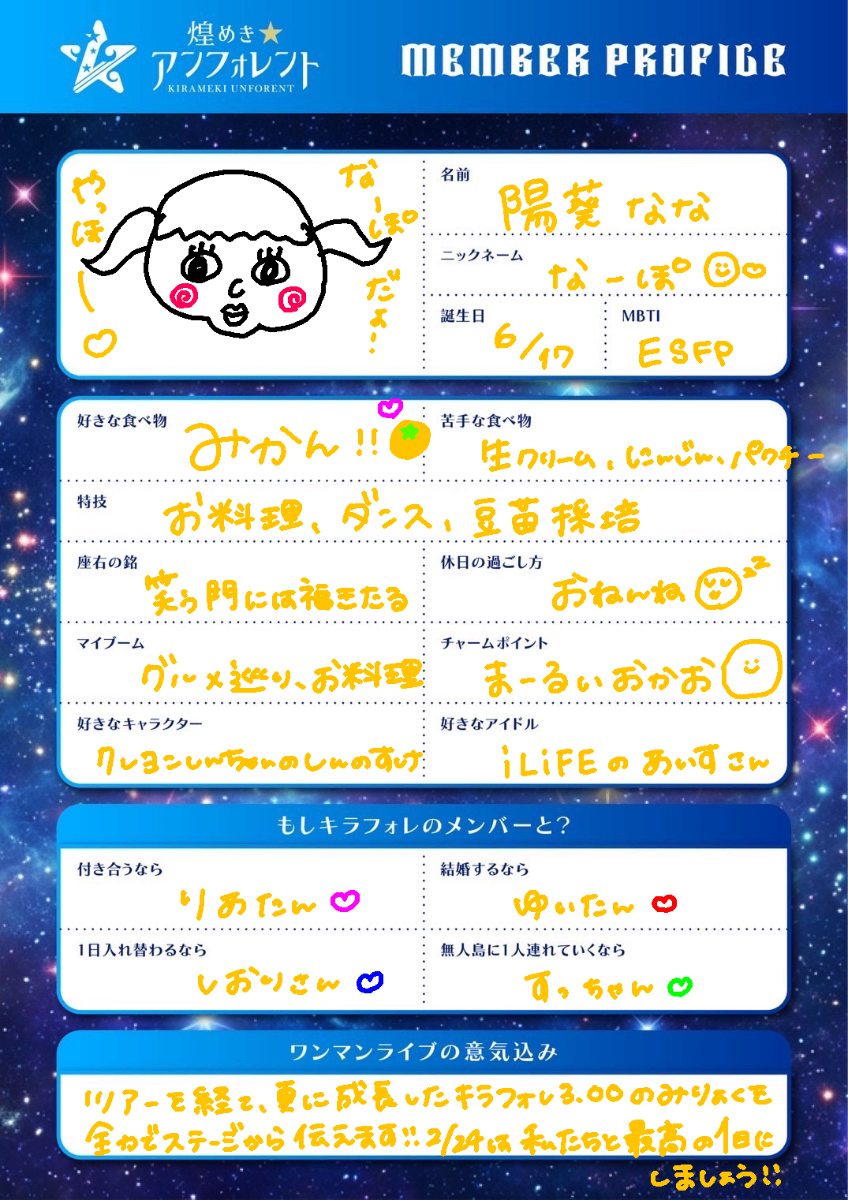 煌めき★
アンフォレント
KIRAMEKI UNFORENT
MEMBER PROFILE
やっほー♡
なーぽだよ!
名前
陽葵 なな
ニックネーム
なーぽ
誕生日
6/17
MBTI
ESFP
好きな食べ物
みかん!!
苦手な食べ物
生クリーム、にんじん、パクチー
特技
お料理、ダンス、豆苗採培
座右の銘
笑う門には福きたる
休日の過ごし方
おねんね
zz
マイブーム
グルメ巡り、お料理
チャームポイント
まーるいおかお
好きなキャラクター
クレヨンしんちゃんのしんのすけ
好きなアイドル
iLiFEの あいすさん
もしキラフォレのメンバーと?
付き合うなら
りあたん♡
結婚するなら
ゆいたん♡
1日入れ替わるなら
しおりさん♡
無人島に1人連れていくなら
すっちゃん♡
ワンマンライブの意気込み
ツアーを経て、更に成長したキラフォレ3.00のみりょくを
全力でステージから伝えます!!2/24は私たちと最高の1日に
しましょう!!